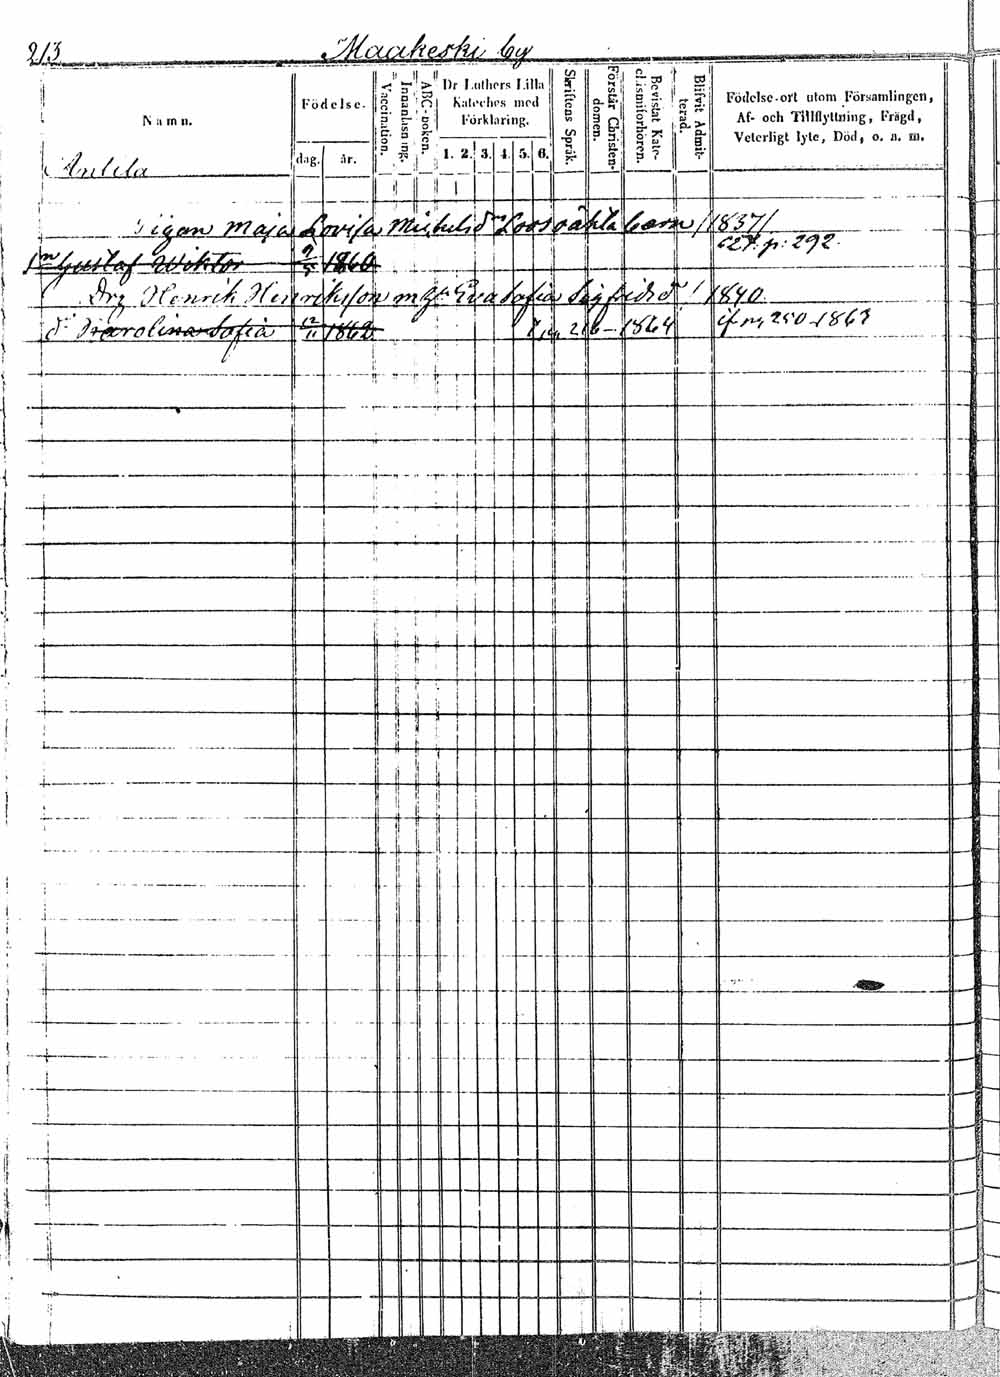 213 Maakeski by
Namn.
Födelse.
dag. år.
Vaccination.
Innanläsning.
ABC-boken.
Dr Luthers Lilla
Kateches med
Förklaring.
1. 2. 3. 4. 5. 6.
Skriftens Språk.
Förstår Christen-
domen.
Bevistat Kate-
chismiförhören.
Blifvit Admit-
terad.
Födelse-ort utom Församlingen,
Af- och Tillflyttning, Frägd,
Veterligt lyte, Död, o. a. m.
Anttila
Pigan Maja Lovisa Michelsdr oäkta barn /1837/
p: 292
Sn Gustaf Wiktor 9/5 1860
Drg Henrik Henriksson m h Eva Sofia Sigfridsdr 1840.
dr Karolina Sofia 12/11 1862 216-1864 250-1863